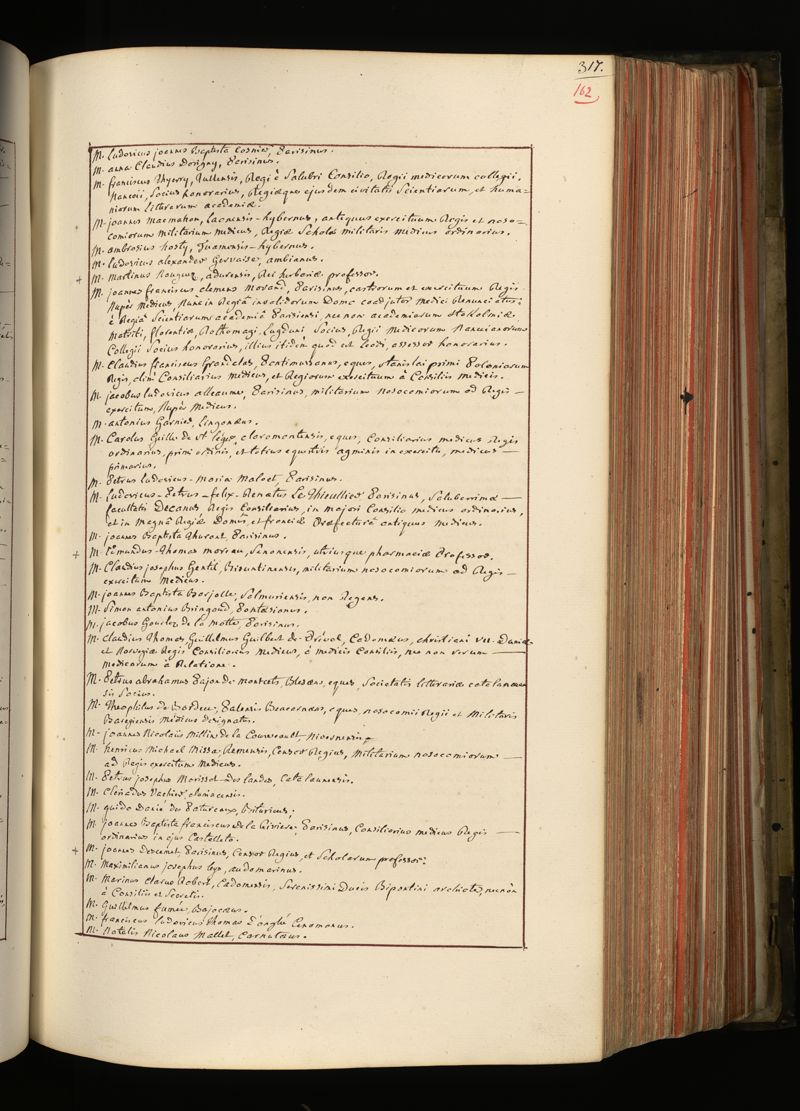 317.
162
M. Ludovicus joannes Baptista Cosnier, Parisinus.
M. anna Claudius Dorigny, Parisinus.
M. franciscus Thyerry, Tullensis, Regi è Salubri Consilio, Regii medicorum collegii,
Nanceii, Socius honorarius, Regiæque ejusdem civitatis Scientiarum, et huma=
niorum Litterarum academiæ.
M. joannes Macmahon, Laonensis-hybernus, antiquus exercituum Regis et noso=
comiorum militarium medicus, Regiæ Scholæ militaris medicus ordinarius.
M. ambrosius hosty, Tuamensis-hybernus.
M. Ludovicus alexander Gervaise, ambianus.
+ M. Martinus Nouguez, adurensis, Rei herbariæ professor.
M. joannes franciscus clemens Morand, Parisinus, castrorum et exercituum Regis
Nuper Medicus, Nunc in Regiâ invalidorum Domo coadjutor medici Renunciatus:
è Regiâ Scientiarum academiâ Parisiensi, nec non academiarum Stokolmiæ,
Matriti, florentiæ, Rothomagi, Lugduni Socius, Regii Medicorum Nanceianorum
Collegii Socius honorarius, illius itidem quod est Leodi, assessor honorarius.
M. Claudius franciscus Grandclas, eques, Stanislai primi Poloniarum
Regis, olim Consiliarius medicus, et Regiorum exercituum à Consiliis medicis.
M. jacobus Ludovicus alleaume, Parisinus, militarium nosocomiorum ad Regis —
exercitum, Nuper Medicus.
M. antonius Garnier, Lingonæus.
M. Carolus Guille de St leger, claromontensis, eques, Consiliarius medicus Regis
ordinarius, primi ordinis, et totius equitris agminis in exercitu, medicus —
primarius.
M. Petrus Ludovicus-Maria Maloet, Parisinus.
M. Ludovicus-Petrus-felix-Renatus Le Thieullier Parisinus, Saluberrimæ —
facultatis Decanus, Regis Consiliarius, in majori Consilio medicus ordinarius,
et in Magnâ Regiæ Domûs, et franciæ Præfecturâ antiquus medicus.
M. joannes Baptista Thurant Parisinus.
+ M. Edmundus-Thomas moreau, Senonensis, utriusque pharmaciæ Professor.
M. Claudius josephus Gentil, Bisuntinensis, militarium nosocomiorum ad Regis —
exercitum Medicus.
M. joannes Baptista Borjolle, Salmuriensis, non Regens.
M. Simon antonius Bringaud, Pontasianus.
M. jacobus de la Motte, Parisinus.
M. Claudius Thomas Guillelmus Guilbert de Préval, Cadomæus, christiani VII. Daniæ
et Norvegiæ Regis Consiliarius Medicus, à medicis Consiliis, nec non rerum —
medicarum à Relatione.
M. Petrus abrahamus Pajon de moncets, Blesæus, eques, Societatis litterariæ catalaunen
sis Socius.
M. Theophilus de Bordeu, Palensis Bearnæus, eques, nosocomii Regii et Militaris
Baregiensis medicus designatus.
M. joannes Nicolaüs Millin de la Courveault, Nivernensis.
M. henricus Michael Missa, Remensis, Censor Regius, Militarium nosocomiorum —
ad Regis exercitum Medicus.
M. Petrus josephus Morisset-Deslandes, Catalaunensis.
M. Cleriadus Vachier, cluniacensis.
M. guido Darié des Patureaux, Bituricus.
M. joannes Baptista franciscus de la Rivière Parisinus, Consiliarius medicus Regis —
ordinarius in ejus Castelleto.
+ M. joannes Descemet, Parisinus, Censor Regius, et Scholarum professor:
M. Maximilianus josephus Leys, audomarinus.
M. Marinus Robert, Cadomensis, Serenissimi Ducis Bipontini archiater, necnon
à Consiliis et Secretis.
M. Guillelmus fumée, Bajocæus.
M. franciscus Ludovicus Thomas D'anglé Cenomanus.
M. Natalis Nicolaus Mallet, Carnutæus.